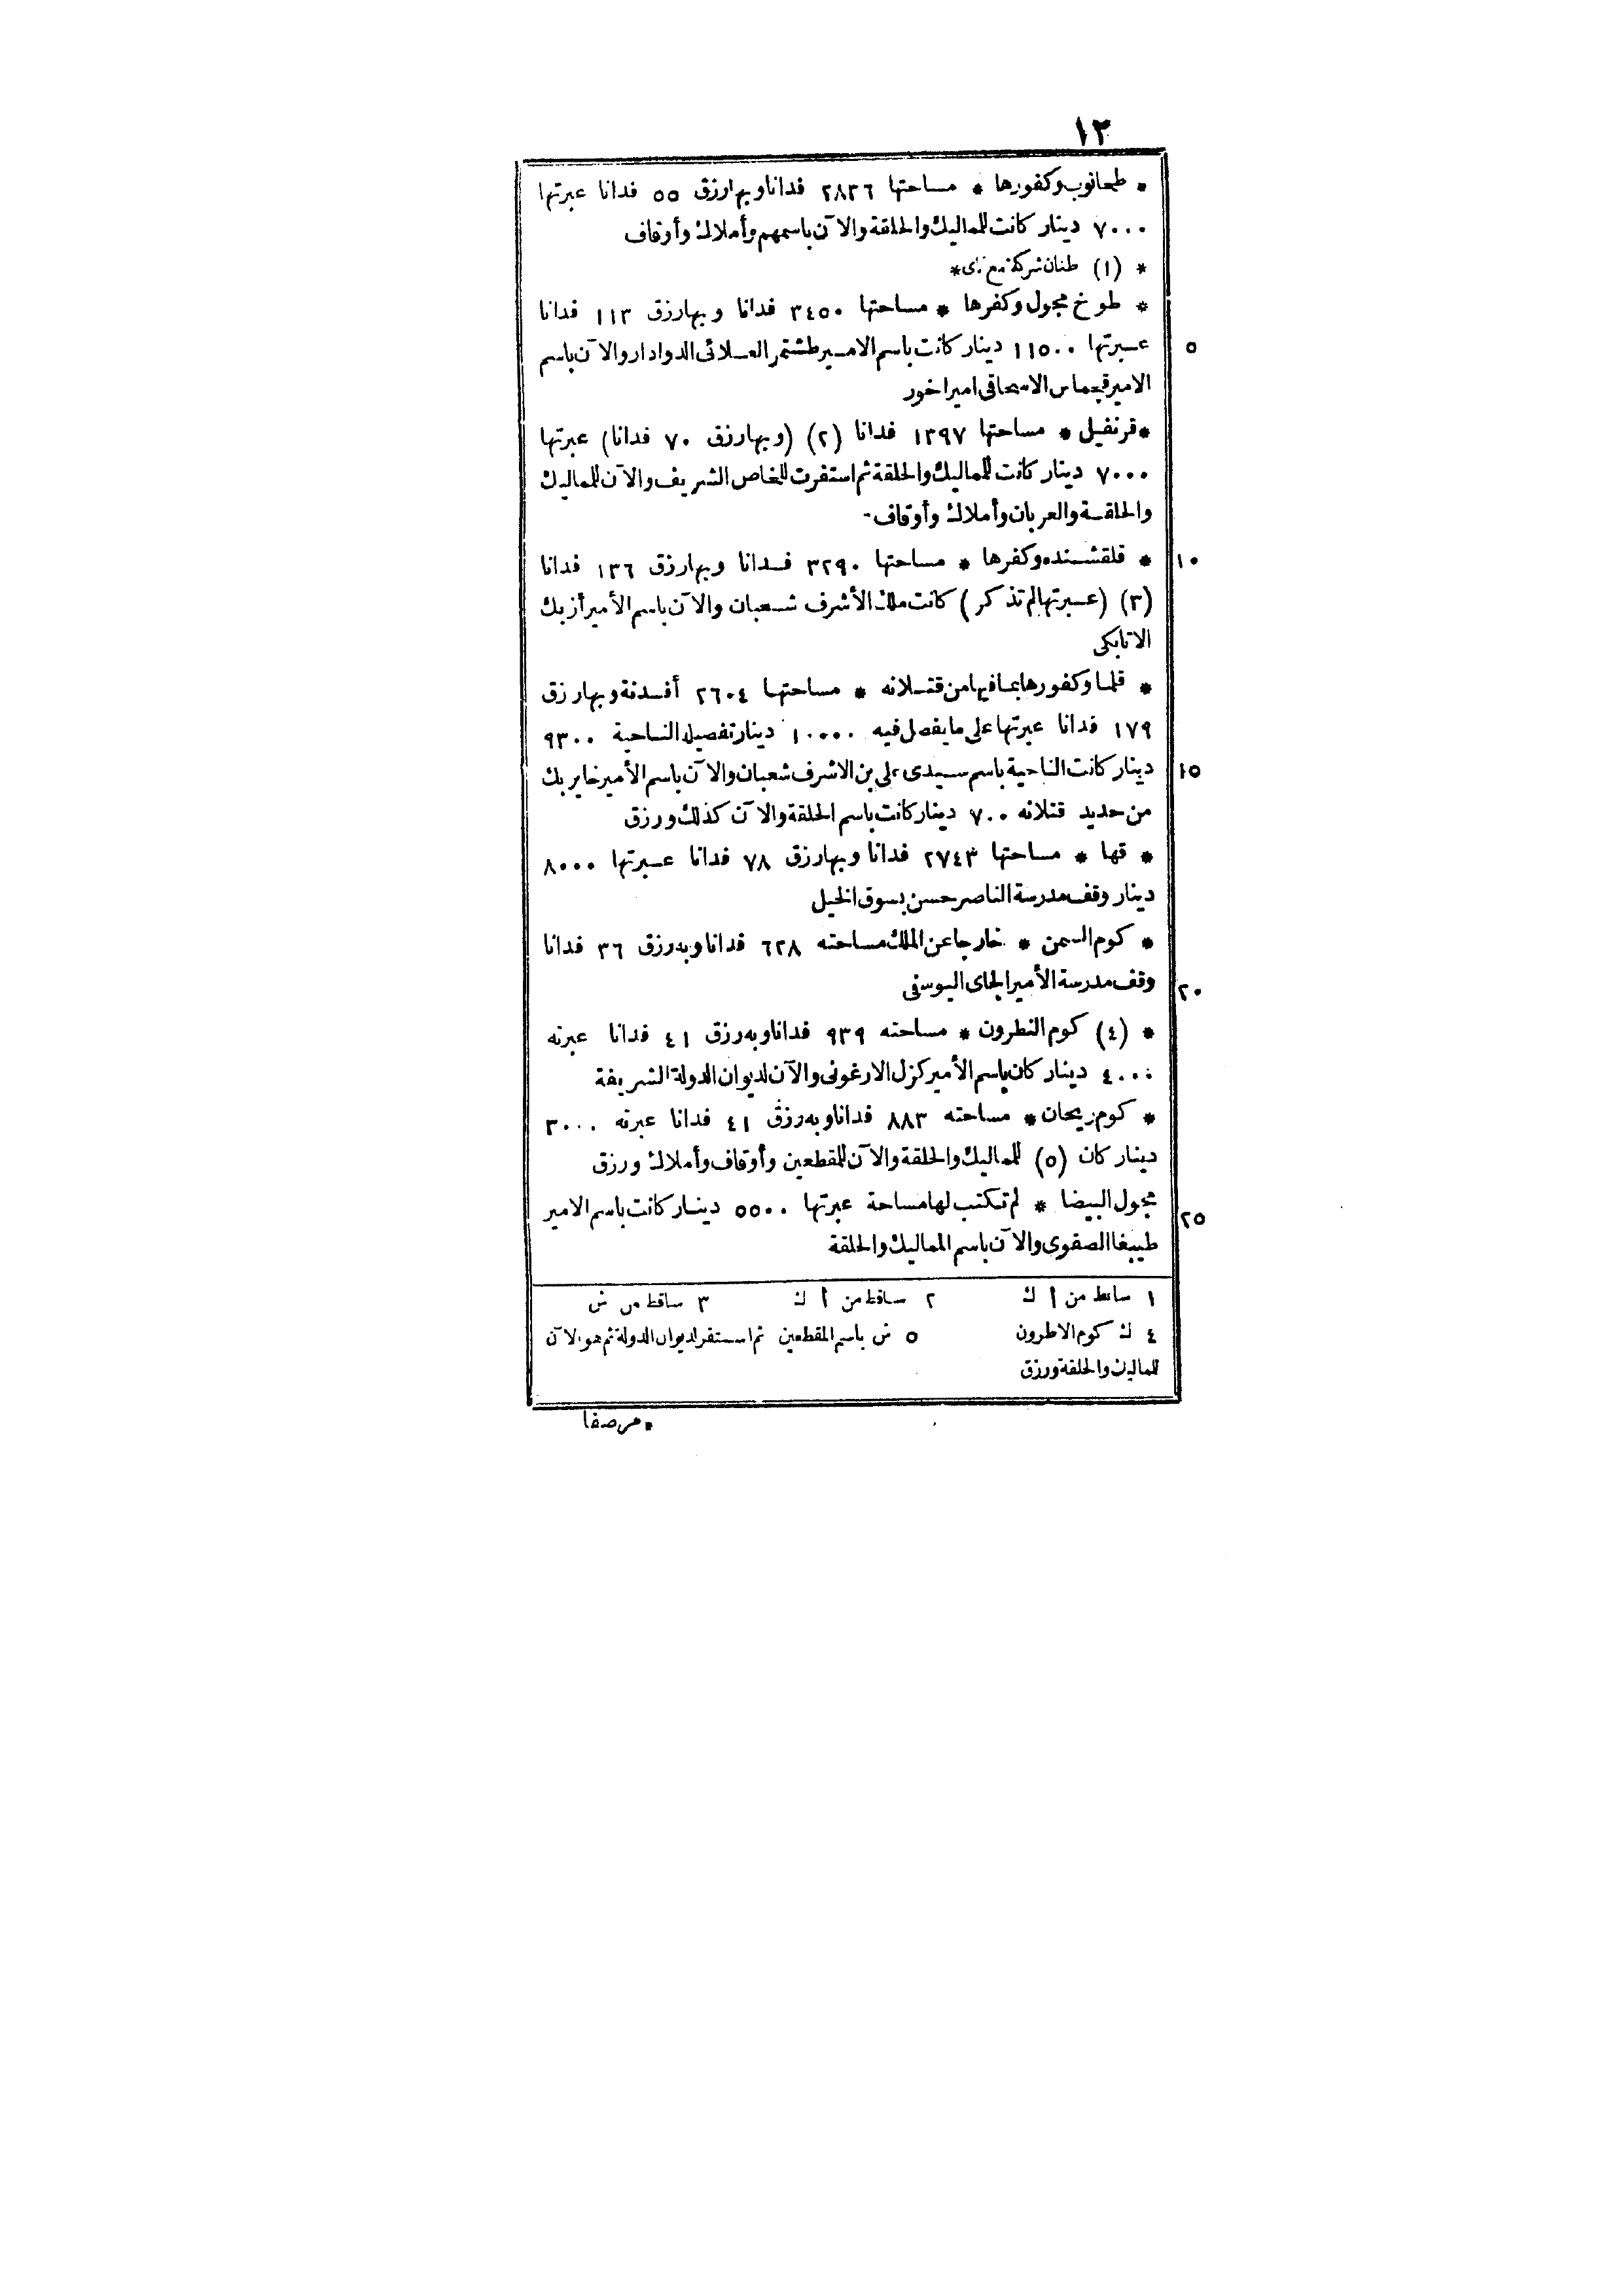 ١٢
* طحانوب وكفورها * مساحتها ٢٨٣٦ فدانا وبها رزق ٥٥ فدانا عبرتها
٧٠٠٠ دينار كانت للماليك والحلقة والآن باسمهم وأملاك وأوقاف
* (١) طنان شركة مع *
* طوخ مجول وكفرها * مساحتها ٣٤٥٠ فدانا وبها رزق ١١٣ فدانا
عبرتها ١١٥٠٠ دينار كانت باسم الامير طشتمر العلائى الدوادار والآن باسم
٥
الامير قجماس الاسحاقى اميراخور
* قرنفيل * مساحتها ١٣٩٧ فدانا (٢) (وبها رزق ٧٠ فدانا) عبرتها
٧٠٠٠ دينار كانت للماليك والحلقة ثم استقرت للخاص الشريف والآن للماليك
والحلقة والعربان وأملاك وأوقاف
* قلقشنده وكفرها * مساحتها ٣٢٩٠ فدانا وبها رزق ١٣٦ فدانا
١٠
(٣) (عبرتها لم تذكر) كانت ملك الأشرف شعبان والآن باسم الأمير أزبك
الاتابكى
* قلما وكفورها بما فيها من قتلانه * مساحتها ٢٦٠٤ أفدنة وبها رزق
١٧٩ فدانا عبرتها على ما يفصل فيه ١٠٠٠٠ دينار تفصيله الناحية ٩٣٠٠
دينار كانت الناحية باسم سيدى على بن الاشرف شعبان والآن باسم الأمير خاير بك
١٥
من حديد قتلانه ٧٠٠ دينار كانت باسم الحلقة والآن كذلك ورزق
* قها * مساحتها ٢٧٤٣ فدانا وبها رزق ٧٨ فدانا عبرتها ٨٠٠٠
دينار وقف مدرسة الناصر حسن بسوق الخيل
* كوم السمن * خارجا عن الملك مساحته ٦٢٨ فدانا وبه رزق ٣٦ فدانا
وقف مدرسة الأمير الجاى اليوسفى
٢٠
* (٤) كوم النطرون * مساحته ٩٣٩ فدانا وبه رزق ٤١ فدانا عبرته
٤٠٠٠ دينار كان باسم الأمير كزل الارغونى والآن لديوان الدولة الشريفة
* كوم ريحان * مساحته ٨٨٣ فدانا وبه رزق ٤١ فدانا عبرته ٣٠٠٠
دينار كان (٥) للماليك والحلقة والآن للمقطعين وأوقاف وأملاك ورزق
مجول البيضا * لم تكتب لها مساحة عبرتها ٥٥٠٠ دينار كانت باسم الامير
٢٥
طيبغا الصفوى والآن باسم المماليك والحلقة
١ ساقط من أ ك ٢ ساقط من أ ك ٣ ساقط من ش
٤ ك كوم الاطرون ٥ ش باسم المقطعين ثم استقر لديوان الدولة ثم هو الآن
للماليك والحلقة ورزق
* مرصفا